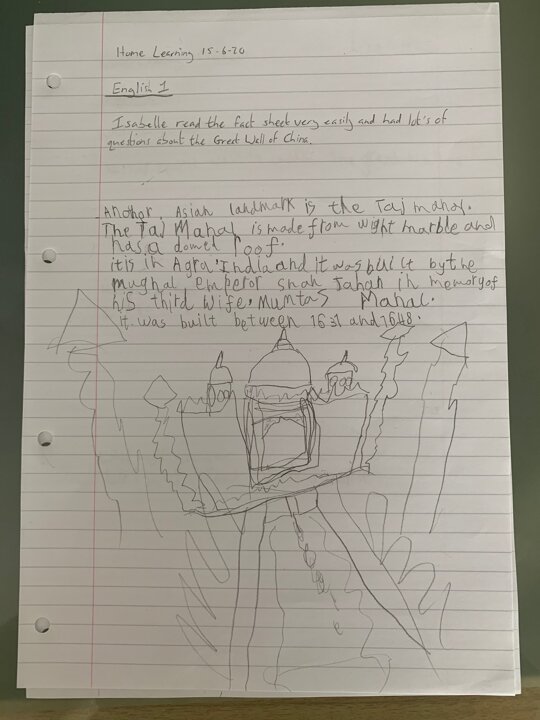 Home Learning 15-6-20
English 1
Isabelle read the fact sheet very easily and had lot's of
questions about the Great Wall of China.
Anothor, Asian landmark is the Taj mahal.
The Taj Mahal is made from wight marble and
has a domed roof.
it is in Agra, India and it was built by the
mughal emperor shah Jahan in memory of
his third wife. Mumtas Mahal.
It was built between 1631 and 1648.